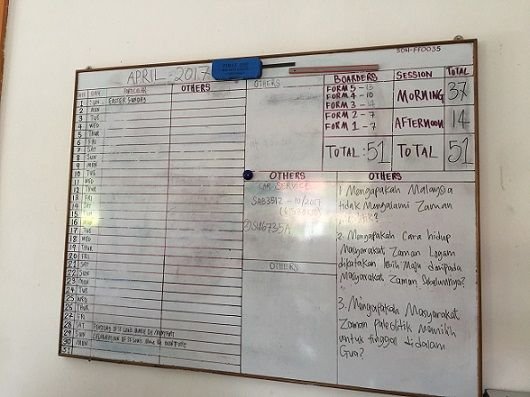 SOH-FF0035
APRIL - 2017
DATE DAY PARTICULAR OTHERS
1 SUN EASTER SUNDAY
2 MON
3 TUE
4 WED
5 THUR
6 FRI
7 SAT
8 SUN
9 MON
10 TUE
11 WED
12 THUR
13 FRI
14 SAT
15 SUN
16 MON
17 TUE
18 WED
19 THUR
20 FRI
21 SAT
22 SUN
23 MON
24 TUE
25 WED
26 THUR
27 FRI
28 SAT
29 SUN
30 MON
31
OTHERS
BOARDERS SESSION TOTAL
FORM 5 - 13
FORM 4 - 10
FORM 3 - 14
MORNING 37
FORM 2 - 7
FORM 1 - 7
AFTERNOON 14
TOTAL: 51 TOTAL 51
OTHERS
CAR SERVICE
OTHERS
OTHERS
1. Mengapakah Malaysia
tidak Mengalami Zaman
2. Mengapakah Cara hidup
Masyarakat Zaman Logam
dikatakan lebih Maju daripada
Masyarakat Zaman Sebelumnya?
3. Mengapakah Masyarakat
Zaman paleolitik Memilih
untuk tinggal didalam
Gua?